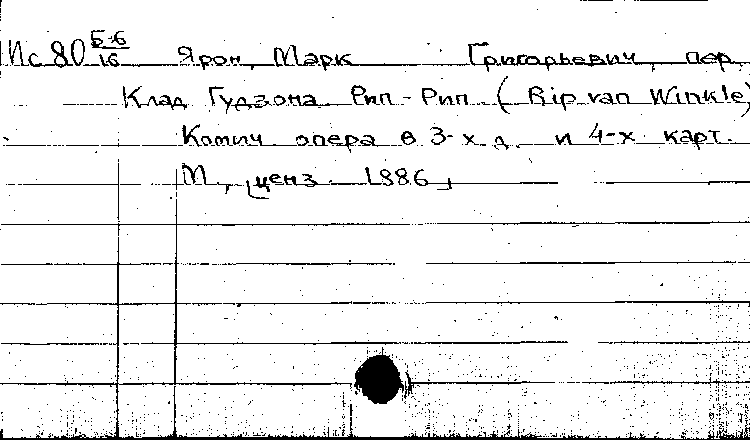 Ис 80 Б-6/16 Ярон, Марк Григорьевич, пер.
Клад Гудзона. Рип-Рип. (Rip van Winkle)
Комич. опера в 3-х д. и 4-х карт.
М., [ценз. 1886]